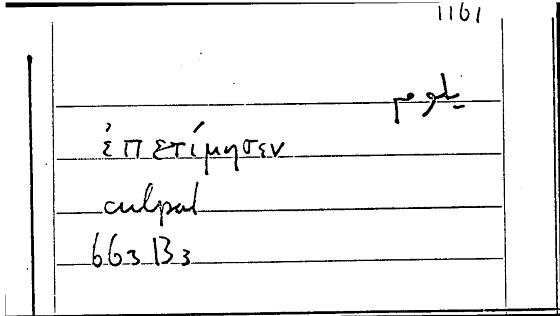 1161
يلوم
ἐπετίμησεν
culpat
663 B3